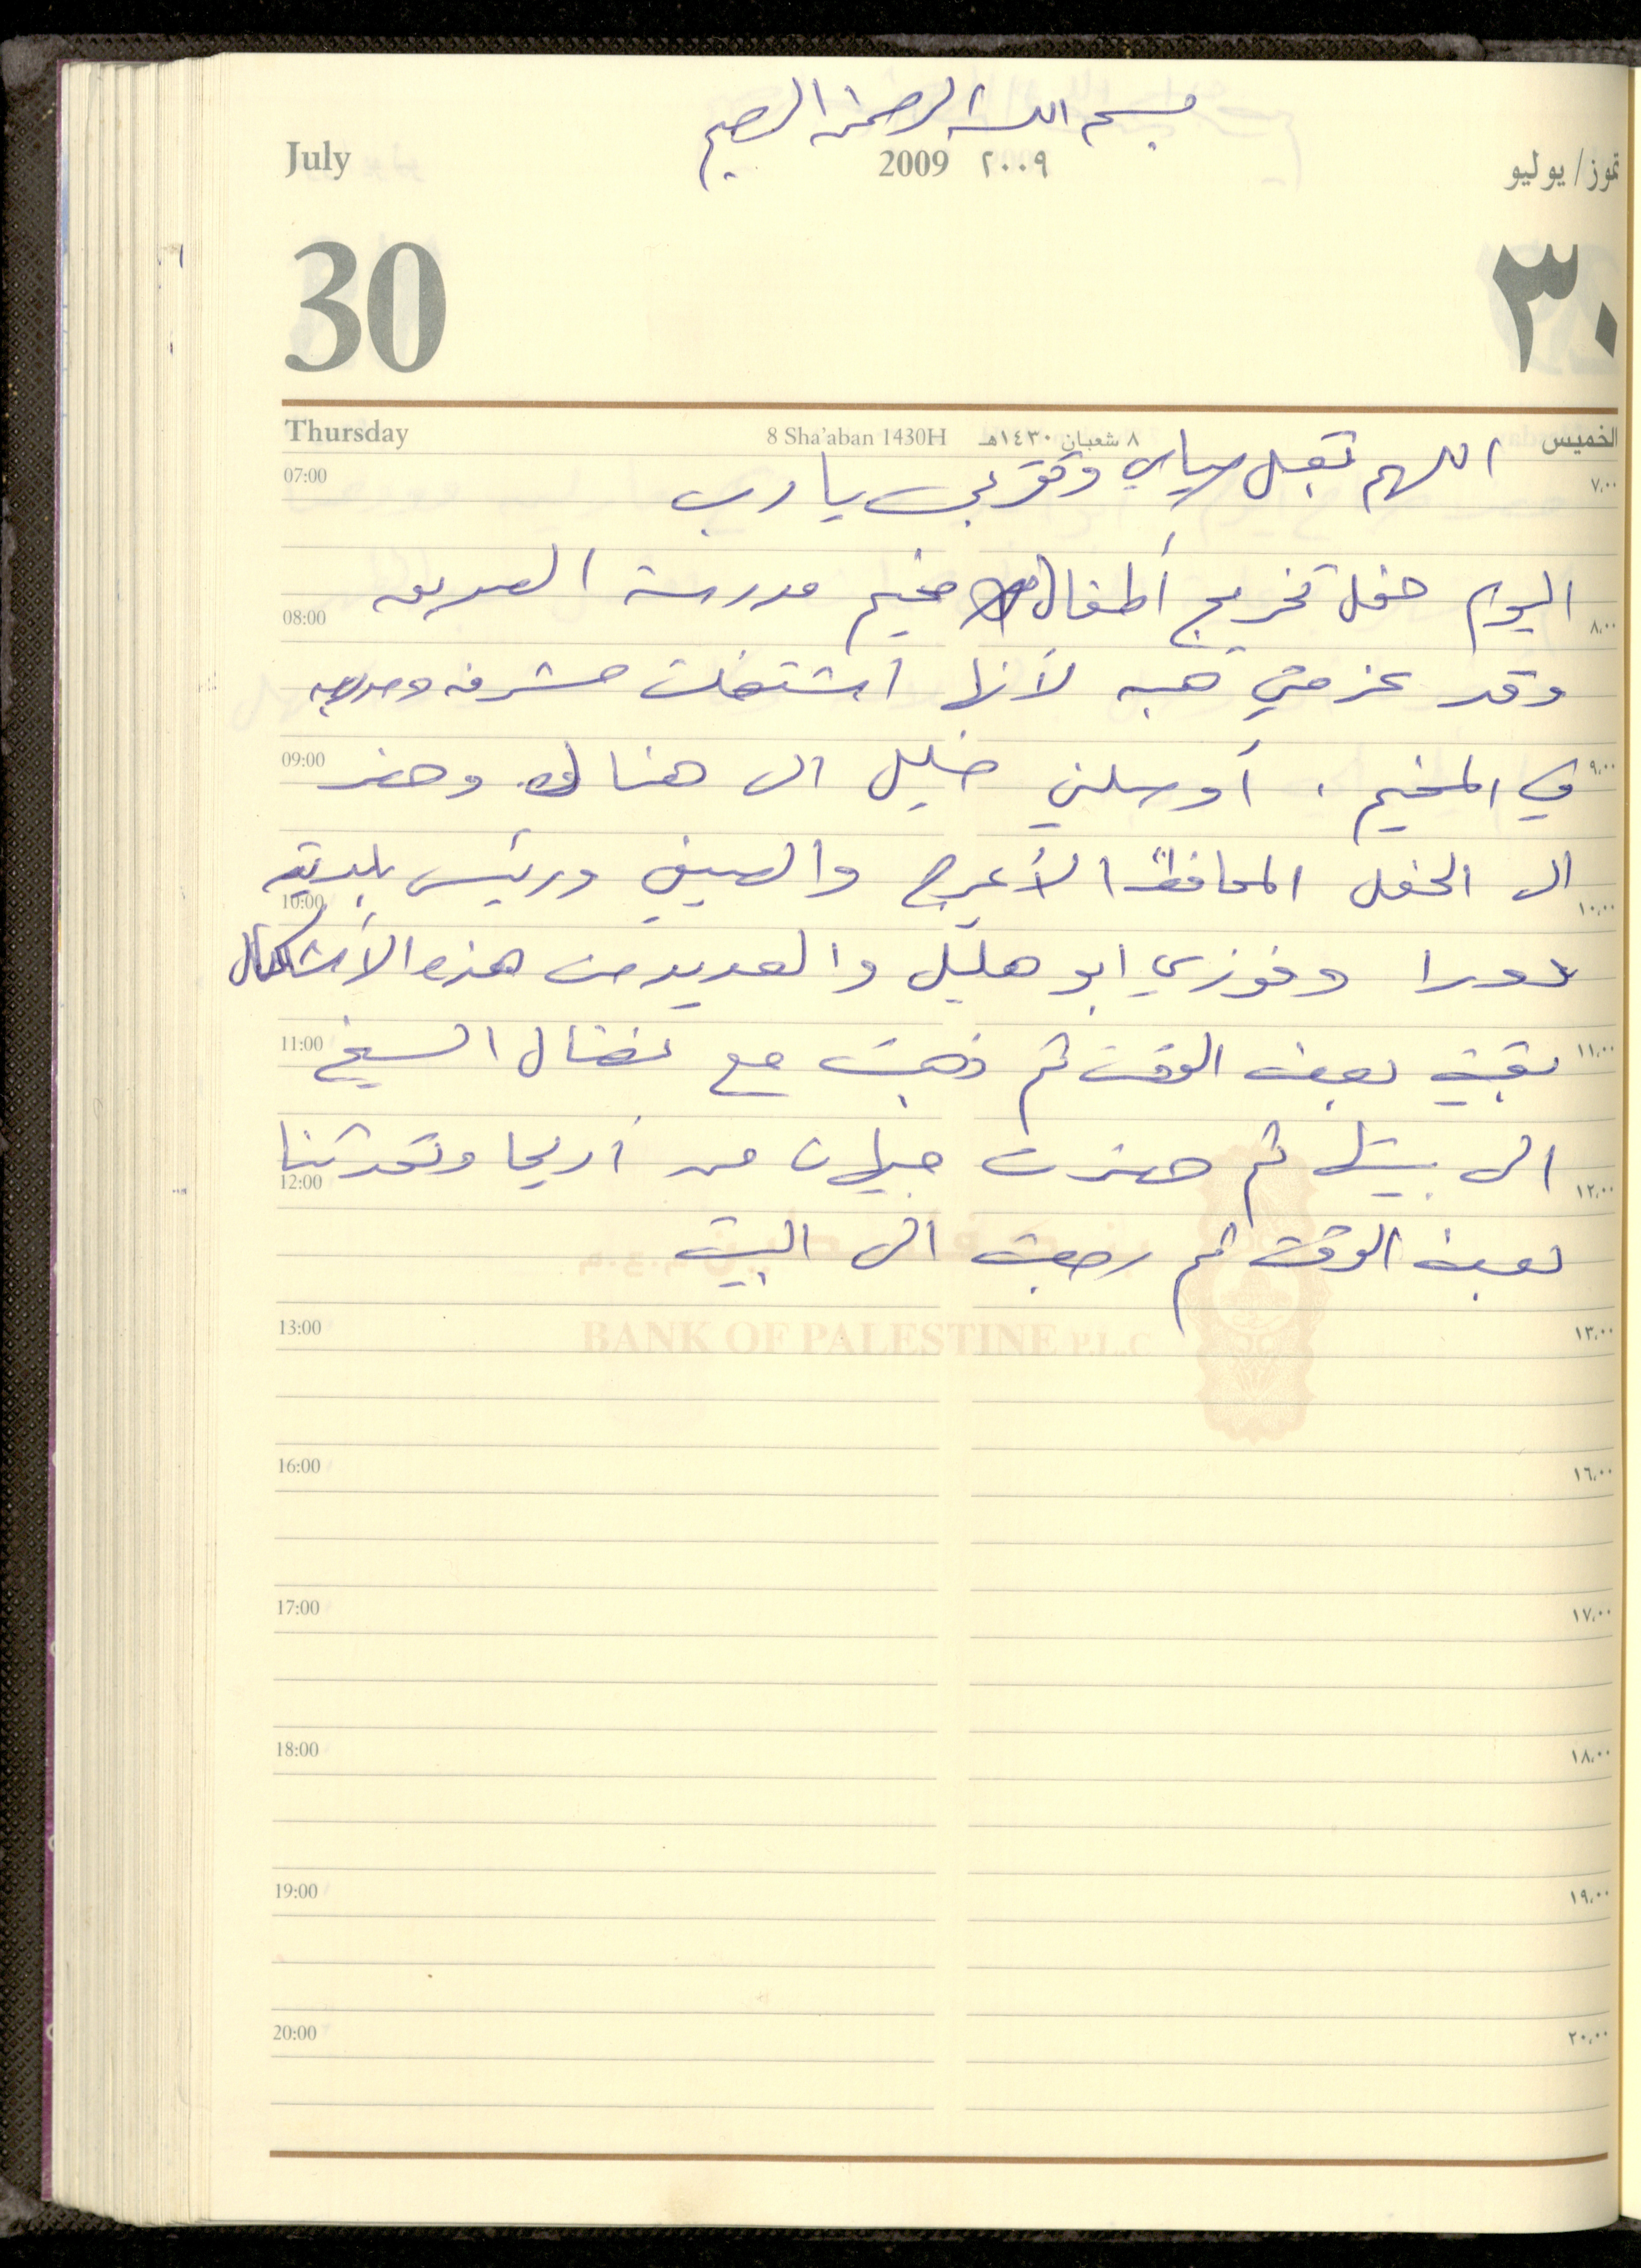 بسم الله الرحمن الرحيم
July 2009 ٢٠٠٩ تموز/يوليو
30 ٣٠
Thursday 8 Sha'aban 1430H ٨ شعبان ١٤٣٠هـ الخميس
07:00 اللهم تقبل صيامي وتقربي يا رب ٧,٠٠
اليوم حفل تخريج أطفال مخيم مدرسة الصديق
08:00 ٨,٠٠
وقد عزمتني هبه لأنها اشتغلت مشرفه ومدربه
09:00 في المخيم. أوصلني خليل الى هناك وحضر ٩,٠٠
الى الحفل المحافظ الأعرج والصيفي ورئيس بلدية
10:00 ١٠,٠٠
دورا وفوزي ابو هليل والعديد من هذه الأشكال
11:00 بقيت بعض الوقت ثم ذهبت مع نضال الشيخ ١١,٠٠
الى بيتها ثم حضرت جيهان من أريحا وتحدثنا
12:00 ١٢,٠٠
بعض الوقت ثم رجعت الى البيت
13:00 ١٣,٠٠
BANK OF PALESTINE P.L.C
16:00 ١٦,٠٠
17:00 ١٧,٠٠
18:00 ١٨,٠٠
19:00 ١٩,٠٠
20:00 ٢٠,٠٠